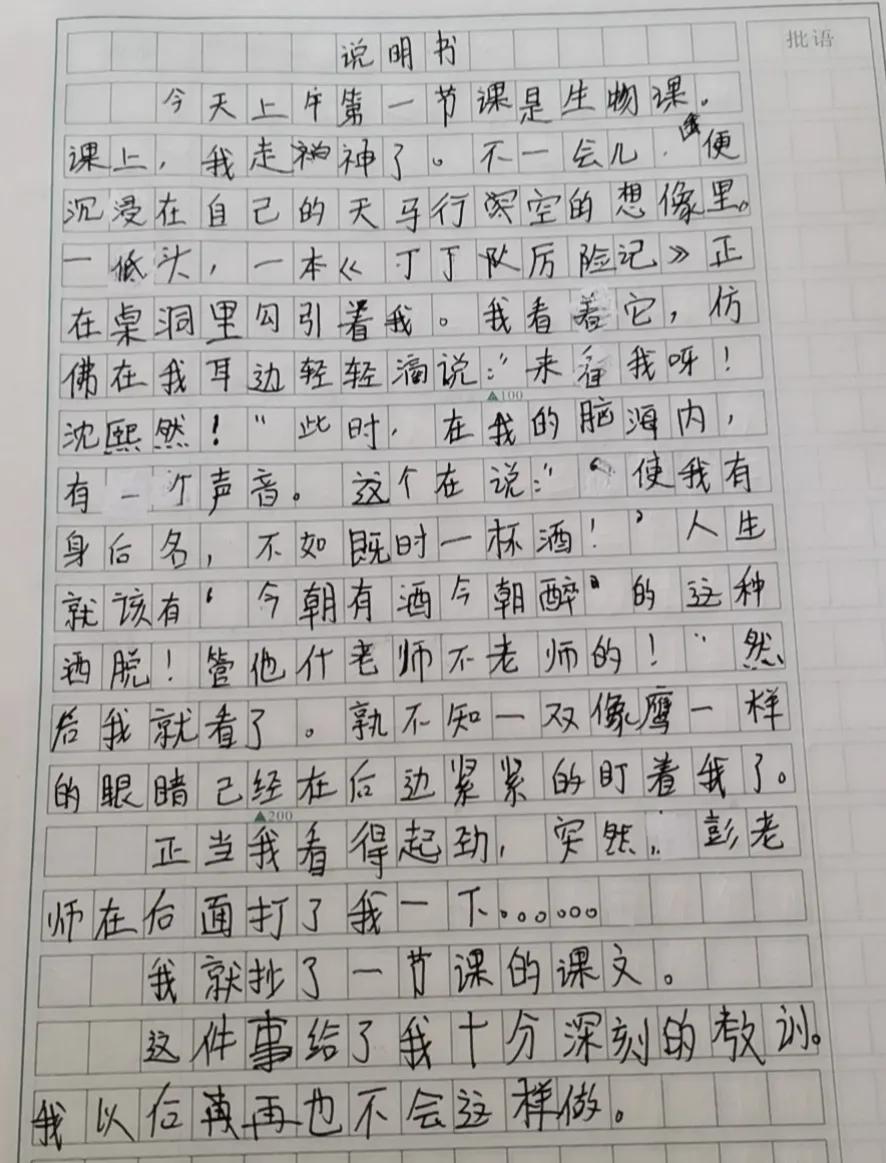 说明书
批语
今天上午第一节课是生物课。
课上,我走神了。不一会儿,便
沉浸在自己的天马行空的想像里。
一低头,一本《丁丁队历险记》正
在桌洞里勾引着我。我看着它,仿
佛在我耳边轻轻说:"来看我呀!
▲100
沈熙然!"此时,在我的脑海内,
有一个声音。这个在说:"'使我有
身后名,不如既时一杯酒!'人生
就该有'今朝有酒今朝醉'的这种
洒脱!管他什老师不老师的!"然
后我就看了。孰不知一双像鹰一样
的眼睛己经在后边紧紧的盯着我了。
▲200
正当我看得起劲,突然,彭老
师在后面打了我一下。。。。。。
我就抄了一节课的课文。
这件事给了我十分深刻的教训。
我以后再也不会这样做。